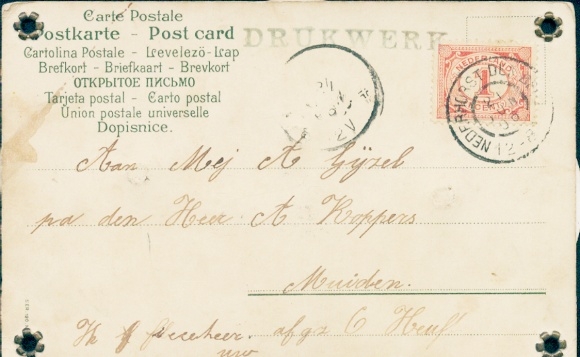 Carte Postale
Postkarte - Post card
Cartolina Postale - Levelező-Lap
Brefkort - Briefkaart - Brevkort
ОТКРЫТОЕ ПИСЬМО
Tarjeta postal - Carto postal
Union postale universelle
Dopisnice.
DRUKWERK
NEDERLAND
1
CENT
NEDERHORST DEN BERG
12-
Aan Mej A Gijzel
pa den Heer A Koppers
Muiden.
Ik
afgz
uw